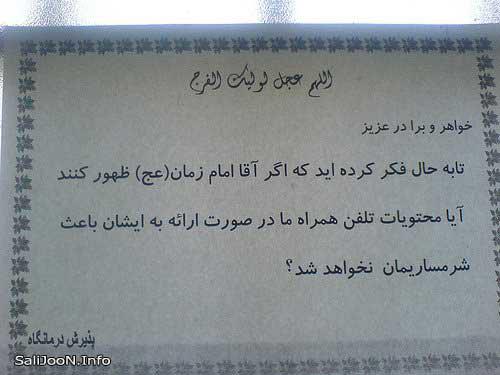 اللهم عجل لولیک الفرج
خواهر و برا در عزیز
تابه حال فکر کرده اید که اگر آقا امام زمان(عج) ظهور کنند
آیا محتویات تلفن همراه ما در صورت ارائه به ایشان باعث
شرمساریمان نخواهد شد؟
پذیرش درمانگاه
SaliJooN.Info